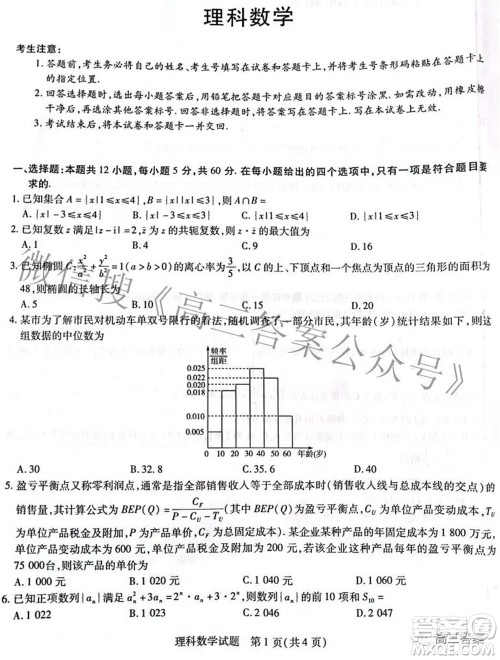 理科数学
考生注意:
1.答题前,考生务必将自己的姓名、考生号填写在试卷和答题卡上,并将考生号条形码粘贴在答题卡上的指定位置。
2.回答选择题时,选出每小题答案后,用铅笔把答题卡对应题目的答案标号涂黑。如需改动,用橡皮擦干净后,再选涂其他答案标号。回答非选择题时,将答案写在答题卡上。写在本试卷上无效。
3.考试结束后,将本试卷和答题卡一并交回。
一、选择题:本题共12小题,每小题5分,共60分.在每小题给出的四个选项中,只有一项是符合题目要求的.
1.已知集合A={x|1≤x≤4},B=
A.{x|-3≤x≤4} B.{x|-3≤x≤1} C.{x|1≤x≤3} D.{x|1≤x≤4}
2.已知复数z满足|z-i|=2, 为z的共轭复数,则z· 的最大值为
A.1 B.4 C.9 D.16
3.已知椭圆C:x²/a²+y²/b²=1(a>b>0)的离心率为3/5,以C的上、下顶点和一个焦点为顶点的三角形的面积为
48,则椭圆的长轴长为
A.5 B.10 C.15 D.20
4.某市为了解市民对机动车单双号限行的看法,随机调查了一部分市民,其年龄(岁)统计结果如下,则这
组数据的中位数为
频率
组距
0.025
0.020
0.010
0.005
0 10 20 30 40 50 60 年龄(岁)
A.30 B.32.8 C.35.6 D.40
5.盈亏平衡点又称零利润点,通常是指全部销售收入等于全部成本时(销售收入线与总成本线的交点)的
销售量,其计算公式为BEP(Q)=C_F/(P-C_U-T_U)(其中BEP(Q)为盈亏平衡点,C_U为单位产品变动成本,T_U
为单位产品税金及附加,P为单位产品价格,C_F为总固定成本).某企业某产品的年固定成本为1 800万元,
单位产品变动成本为600元,单位产品税金及附加为
75 000台,则该产品的单价为
A.1 000元 B.1 020元 C.1 060元 D.1 080元
6.已知正项数列{aₙ}满足aₙ²+3aₙ=2ⁿ·aₙ+3·2ⁿ,则{aₙ}的前10项和S₁₀=
A.1 022
理科数学试题 第1页(共4页)
微信搜《高三答案公众号》
高三答案